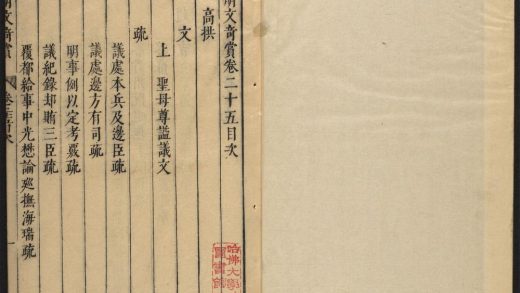 明文奇賞卷二十五目次
高拱
文
上 聖母尊謚議文
疏
議處本兵及邊臣疏
議處邊方有司疏
明事例以定考覈疏
議紀錄却賄三臣疏
覆都給事中光懋論巡撫海瑞疏
明文奇賞
目次
一
哈佛大學
圖書館